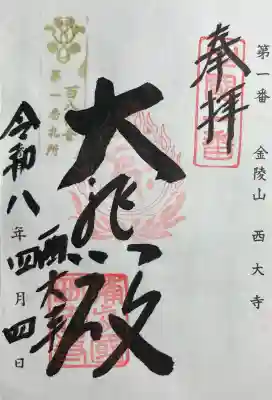 第一番 金陵山 西大寺
奉拝
大悲殿
西大寺
百八観音
第一番札所
令和八年四月四日